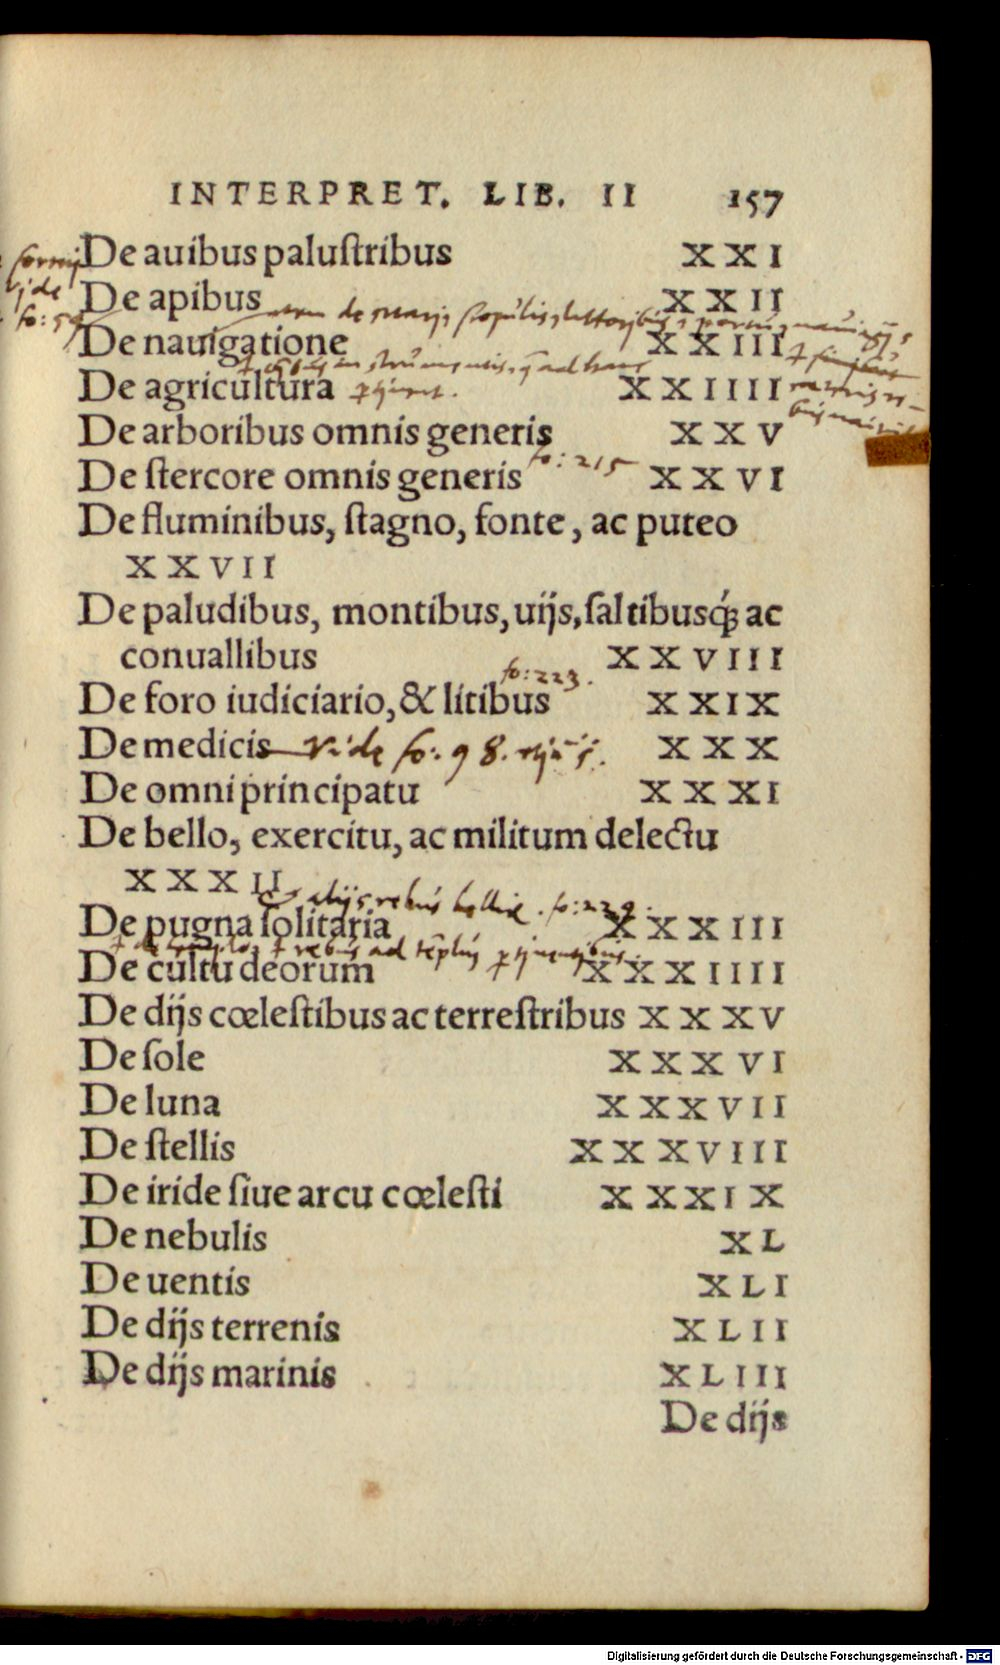 INTERPRET. LIB. II 157
De auibus paluſtribus XXI
De apibus XXII
fo: 59
De nauigatione XXIII
De agricultura XXIIII
De arboribus omnis generis XXV
fo: 215
De ſtercore omnis generis XXVI
De fluminibus, ſtagno, fonte, ac puteo
XXVII
De paludibus, montibus, uijs, ſaltibusq́; ac
conuallibus XXVIII
fo: 223.
De foro iudiciario, & litibus XXIX
De medicis vide fo: 98. XXX
De omni principatu XXXI
De bello, exercitu, ac militum delectu
XXXII
& alijs rebus bellicę. fo: 229.
De pugna ſolitaria XXXIII
rebus ad
De cultu deorum XXXIIII
De dijs cœleſtibus ac terreſtribus XXXV
De ſole XXXVI
De luna XXXVII
De ſtellis XXXVIII
De iride ſiue arcu cœleſti XXXIX
De nebulis XL
De uentis XLI
De dijs terrenis XLII
De dijs marinis XLIII
De dijs
Digitalisierung gefördert durch die Deutsche Forschungsgemeinschaft - DFG